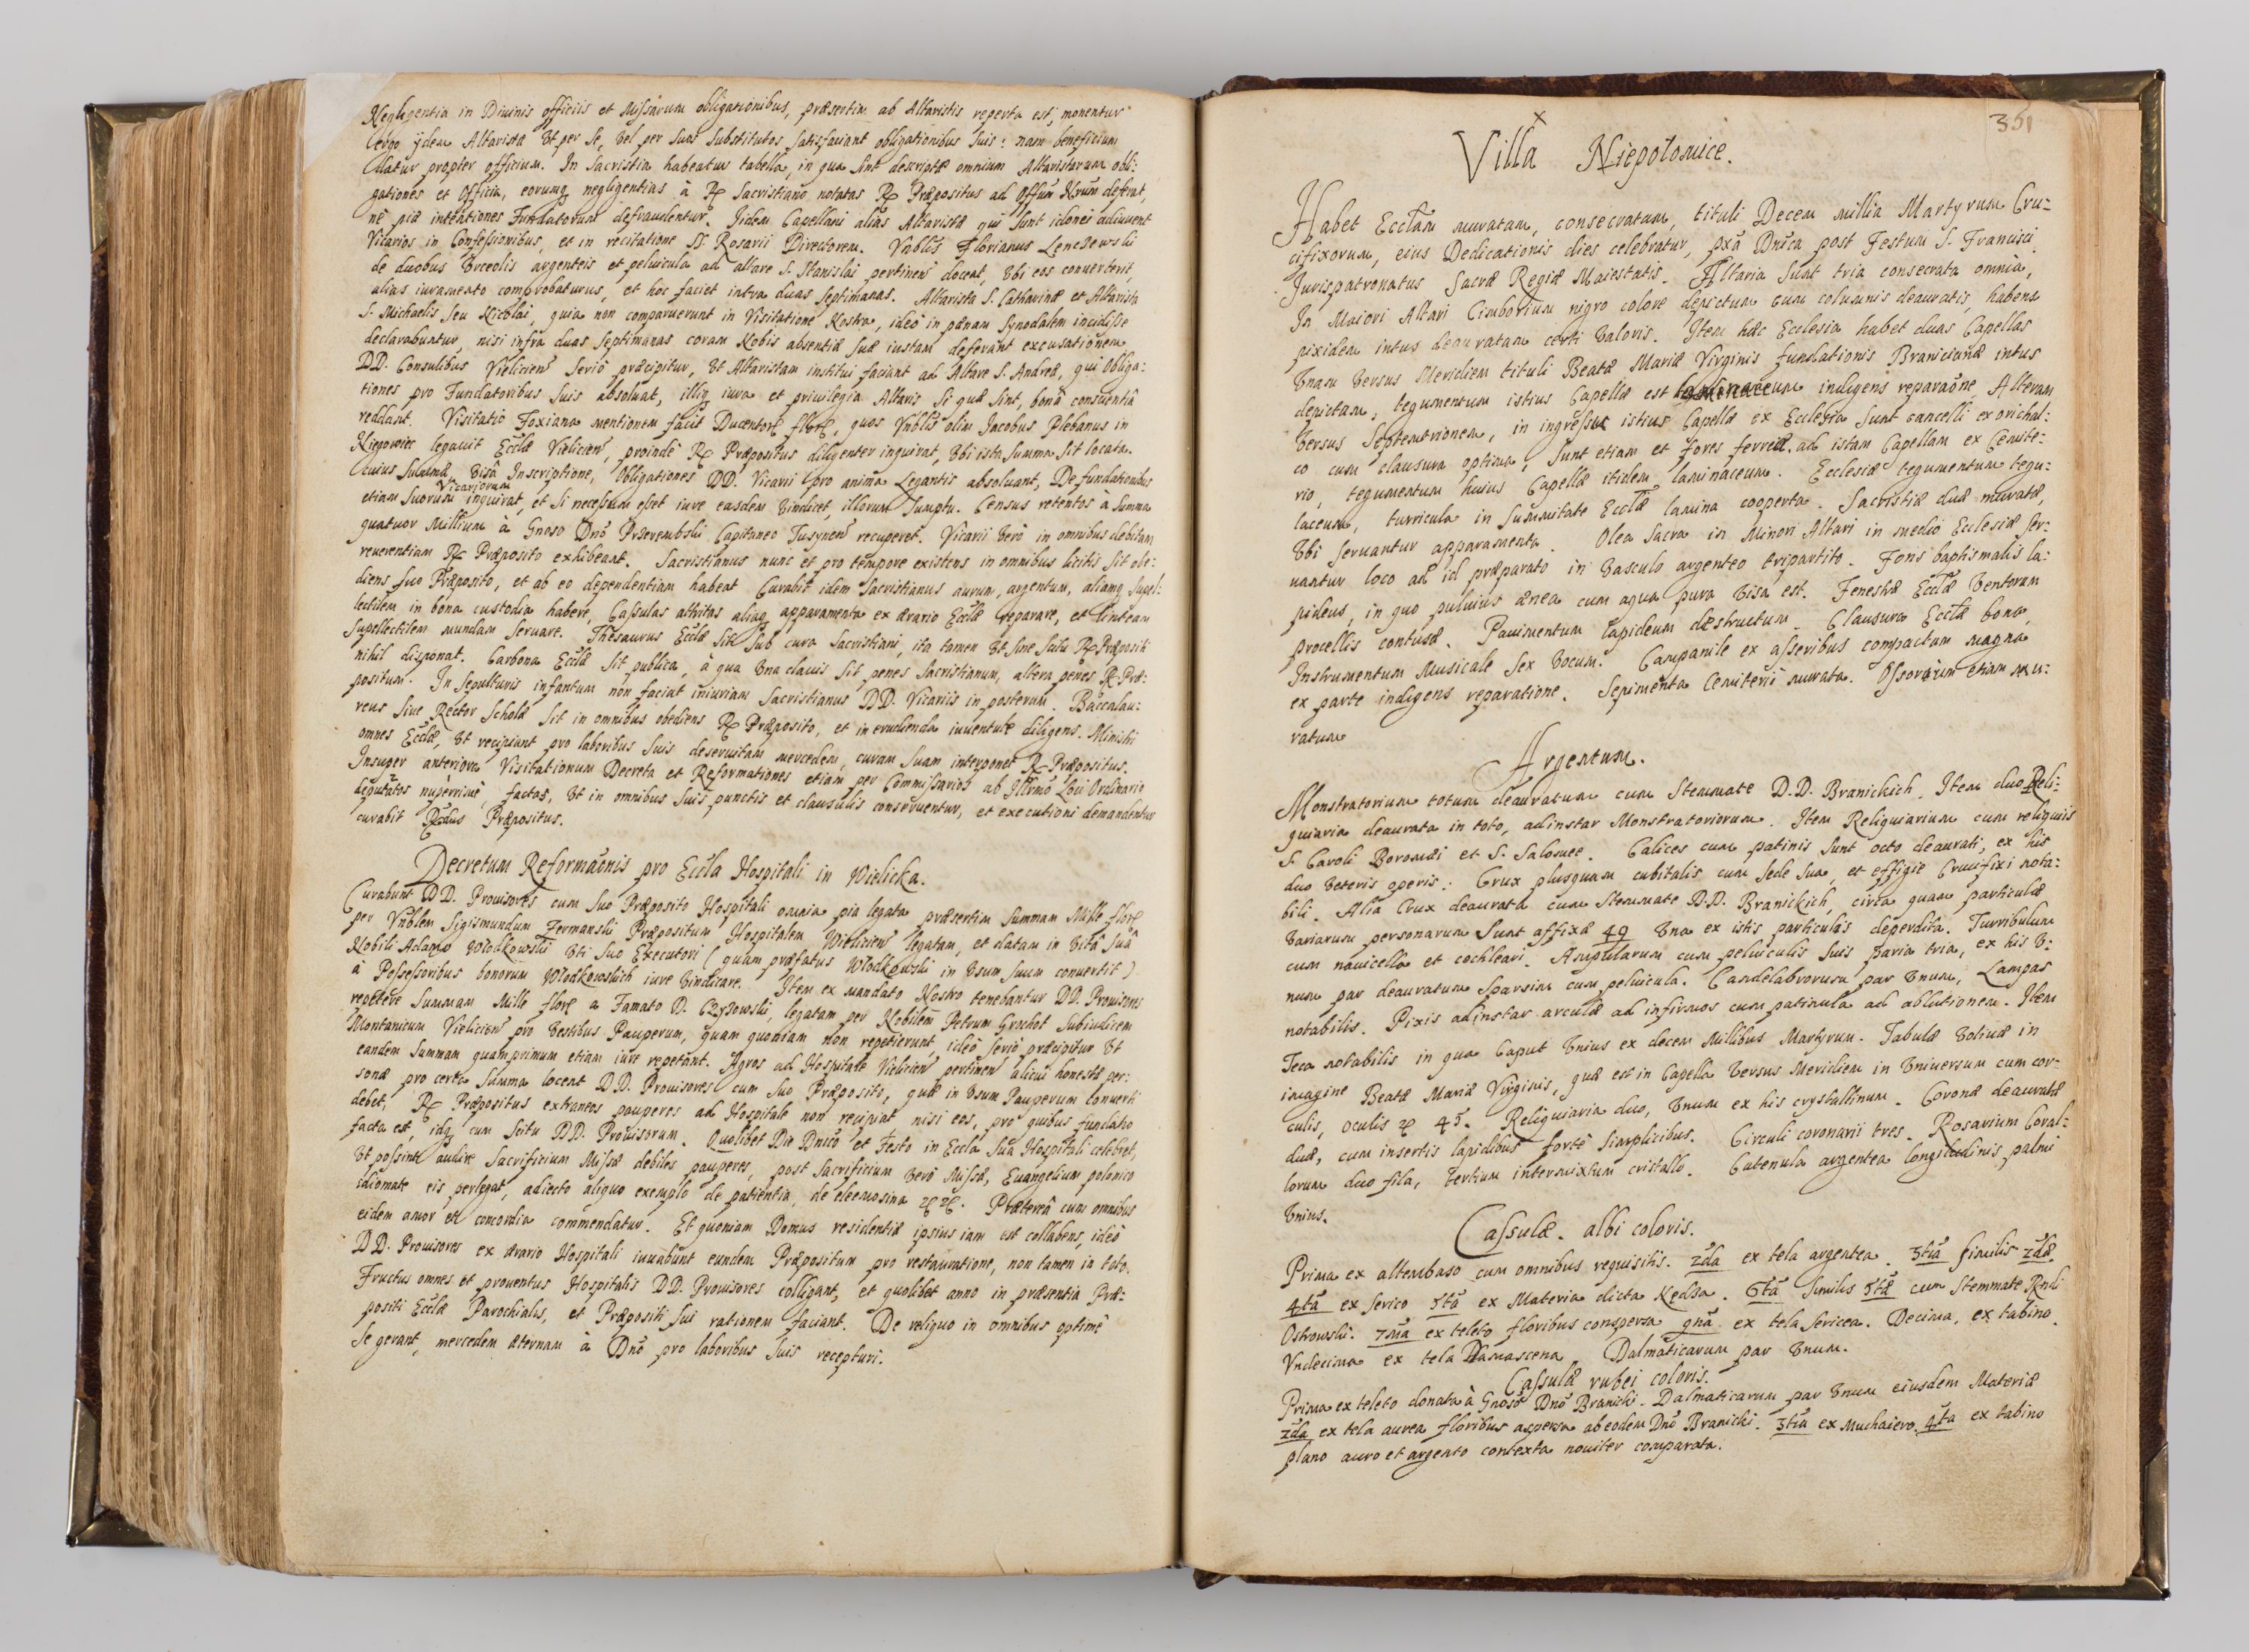 Negligentia in Diuinis officiis et Missarum obligationibus, præsertim ab Altaristis reperta est, monentur
ergo ijdem Altaristæ vt per se, vel per suos substitutos satisfaciant obligationibus suis: nam beneficium
datur propter officium. In Sacristia habeatur tabella, in qua sint descriptæ omnium Altaristarum obli:
gationes et officia, eorumq negligentias à R Sacristiano notatas R Præpositus ad Offum Nrum deferat,
nè piæ intentiones Fundatorum defraudentur. Iidem Capellani aliàs Altaristæ qui sunt idonei adiuuent
Vicarios in Confessionibus, et in recitatione SS. Rosarii Directorem. Vnblis Florianus Lenczewski
de duobus Vrceolis argenteis et peluicula ad altare S. Stanislai pertinen doceat, Vbi eos conuerterit,
alias iuramento comprobaturus, et hoc faciet intra duas septimanas. Altarista S. Catharinæ et Altarista
S. Michaelis seu Nicolai, quia non comparuerunt in Visitatione Nostra, ideò in pænam Synodalem incidisse
declarabuntur, nisi infra duas septimanas coram Nobis absentiæ suæ iustam deferant excusationem
DD. Consulibus Vielicien seriò præcipitur, Vt Altaristam institui faciant ad Altare S. Andreæ, qui obliga:
tiones pro Fundatoribus suis absoluat, illiq iura et priuilegia Altaris si quæ sint, bona consuentia
reddant. Visitatio Foxiana mentionem facit Ducentor flor, quos Vnblis olim Jacobus Plebanus in
Niegowiec legauit Ecclæ Vielicien, proindè R Præpositus diligenter inquirat, Vbi ista summa sit locata.
cuius summæ Visâ Inscriptione, Obligationes DD. Vicarii pro anima Legantis absoluant, De fundationibus
Vicariorum
etiam suorum inquirat, et si necessum esset iure easdem Vindicet, illorum sumptu. Census retentos à summa
quatuor Millium à Gnoso Dno Przerembski Capitaneo Tusynen recuperet. Vicarii Verò in omnibus debitam
reuerentiam R Præposito exhibeant. Sacristianus nunc et pro tempore existens in omnibus licitis sit obe:
diens suo Præposito, et ab eo dependentiam habeat Curabit idem Sacristianus aurum, argentum, aliamq supel:
lectilem in bona custodia habere, Cassulas attritas aliaq apparamenta ex ærario Ecclæ reparare, et linteam
supellectilem mundam seruare. Thesaurus Ecclæ sit sub cura Sacristiani, ita tamen Vt sine scitu R Præpositi
nihil disponat. Carbona Ecclæ sit publica, à qua Vna clauis sit penes Sacristianum, altera penes R Præ:
positum. In sepulturis infantum non faciat iniuriam Sacristianus DD. Vicariis in posterum. Baccalau:
reus siue Rector Scholæ sit in omnibus obediens R Præposito, et in erudienda iuuentute diligens. Ministri
omnes Ecclæ, Vt recipiant pro laboribus suis deseruitam mercedem, curam suam interponet R Præpositus.
Insuper anteriora Visitationum Decreta et Reformationes etiam per Commissarios ab Illrmo Loci Ordinario
deputatos nuperrimè, factas, Vt in omnibus suis punctis et clausulis conseruentur, et executioni demandentur
curabit Rndus Præpositus.
Decretum Reformaonis pro Eccla Hospitali in Wielicka.
Curabunt DD. Prouisores cum suo Præposito Hospitali omnia pia legata præsertim summam Mille flor
per Vnblem Sigismundum Zermanski Præpositum Hospitalem Vielicien legatam, et datam in Vita sua
Nobili Adamo Wlodkowski Vti suo Executori (quam præfatus Wlodkowski in Vsum suum conuertit)
à Possessoribus bonorum Wlodkowskich iure Vindicare. Item ex mandato Nostro tenebantur DD. Prouisores
repetere summam Mille flor a Famato D. Czyzowski, legatam per Nobilem Petrum Grochot Subiudicem
Montanicum Vielicien pro Vestibus Pauperum, quam quoniam non repetierunt, ideò seriò præcipitur Vt
eandem summam quamprimum etiam iure repetant. Agros ad Hospitale Vielicien pertinen alicui honestæ per:
sonæ pro certa summa locent DD. Prouisores cum suo Præposito, quæ in Vsum Pauperum conuerti
debet, R Præpositus extraneos pauperes ad Hospitale non recipiat nisi eos, pro quibus fundatio
facta est, idq cum scitu DD. Prouisorum. Quolibet Die Dnico et Festo in Eccla sua Hospitali celebret,
Vt possint audire Sacrificium Missæ debiles pauperes, post Sacrificium Verò Missæ, Euangelium polonico
idiomate eis perlegat, adiecto aliquo exemplo de patientia, de eleemosina &c. Prætereà cum omnibus
eidem amor et concordia commendatur. Et quoniam Domus residentiæ ipsius iam est collabens, ideò
DD. Prouisores ex ærario Hospitali iuuabunt eundem Præpositum pro restauratione, non tamen in toto.
Fructus omnes et prouentus Hospitalis DD. Prouisores colligant, et quolibet anno in præsentia Præ:
positi Ecclæ Parochialis, et Præpositi sui rationem faciant. De reliquo in omnibus optimè
se gerant, mercedem æternam à Dno pro laboribus suis recepturi.
351
Villa Niepolomice.
Habet Ecclam muratam, consecratam, tituli Decem millia Martyrum Cru:
cifixorum, eius Dedicationis dies celebratur, pxa Dnica post Festum S. Francisci.
Jurispatronatus Sacræ Regiæ Maiestatis. Altaria sunt tria consecrata omnia,
In Maiori Altari Cimborium nigro colore depictum cum columnis deauratis, habens
pixidem intus deauratam certi Valoris. Item hæc Ecclesia habet duas Capellas
Vnam Versus Meridiem tituli Beatæ Mariæ Virginis fundationis Braniciana intus
depictam, tegumentum istius Capellæ est laminaceum indigens reparaone, Alteram
Versus Septentrionem, in ingressu istius Capellæ ex Ecclesia sunt cancelli ex orichal:
co cum clausura optima, sunt etiam et fores ferreæ ad istam Capellam ex Cemite:
rio, tegumentum huius Capellæ itidem laminaceum. Ecclesiæ tegumentum tegu:
laceum, turricula in summitate Ecclæ lamina cooperta. Sacristiæ duæ muratæ,
Vbi seruantur apparamenta. Olea Sacra in Minori Altari in medio Ecclesiæ ser:
uantur loco ad id præparato in Vasculo argenteo tripartito. Fons baptismalis la:
pideus, in quo puluius ænea cum aqua pura Visa est. Fenestræ Ecclæ Ventorum
procellis contusæ. Pauimentum lapideum destructum. Clausura Ecclæ bona,
Instrumentum Musicale sex Vocum. Campanile ex asseribus compactum magna
ex parte indigens reparatione. Sepimenta Cemiterii murata. Ossorium etiam mu:
ratum
Argentum.
Monstratorium totum deauratum cum Stemmate D.D. Branickich. Item duo Reli:
quiaria deaurata in toto, adinstar Monstratoriorum. Item Reliquiarium cum reliquiis
S. Caroli Boromæi et S. Salomee. Calices cum patinis sunt octo deaurati, ex his
duo Veteris operis. Crux plusquam cubitalis cum sede sua, et effigie Crucifixi nota:
bili. Alia Crux deaurata cum Stemmate D.D. Branickich, circa quam particulæ
Variarum personarum sunt affixæ 49 Vna ex istis particulis deperdita. Turribulum
cum nauicella et cochleari. Ampularum cum peluiculis suis paria tria, ex his V:
num par deauratum sparsim cum peluicula. Candelabrorum par Vnum, Lampas
notabilis. Pixis adinstar arculæ ad infirmos cum patinula ad ablutionem. Item
Teca notabilis in qua Caput Vnius ex decem Millibus Martyrum. Tabulæ Votiuæ in
imagine Beatæ Mariæ Virginis, quæ est in Capella Versus Meridiem in Vniuersum cum cor-
culis, oculis & 45. Reliquiaria duo, Vnum ex his crystallinum. Coronæ deauratæ
duæ, cum insertis lapidibus fortè simplicibus. Circuli coronarii tres. Rosarium Coral:
lorum duo fila, tertium intermixtum cristallo. Catenula argentea longitudinis palmi
Vnius.
Cassulæ albi coloris.
Prima ex altembaso cum omnibus requisitis. 2da ex tela argentea. 3tia similis 2dæ.
4ta ex serico 5ta ex Materia dicta Kędza. 6ta similis 5tæ cum Stemmate Rndi
Ostrowski. 7ma ex teleto floribus conspersa 9na ex tela sericea. Decima, ex tabino.
Vndecima ex tela Damascena Dalmaticarum par Vnum.
Cassulæ rubei coloris.
Prima ex teleto donata à Gnoso Dno Branicki. Dalmaticarum par Vnum eiusdem Materiæ
2da ex tela aurea floribus aspersa ab eodem Dno Branicki. 3tia ex Muchaiero. 4ta ex tabino
plano auro et argento contexta nouiter comparata.